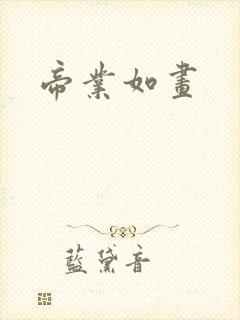 帝業如畫
藍黛音